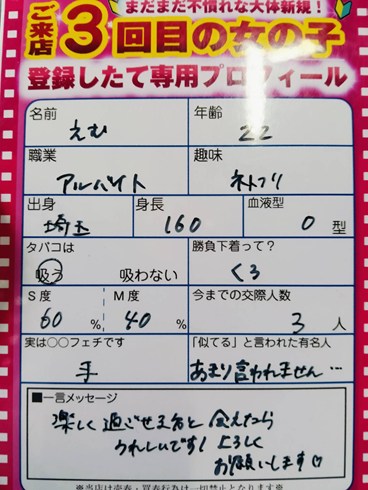 まだまだ不慣れな大体新規!
ご来店3回目の女の子
登録したて専用プロフィール
名前 えむ
年齢 22
職業 アルバイト
趣味 ネトフリ
出身 埼玉
身長 160
血液型 O 型
タバコは 吸う 吸わない
勝負下着って? くろ
S度 60 %
M度 40 %
今までの交際人数 3 人
実は○○フェチです 手
「似てる」と言われた有名人 あまり言われません…
■一言メッセージ
楽しく過ごせる方と会えたら
うれしいです! よろしく
お願いします♡
※当店は売春・買春行為は一切禁止となります※